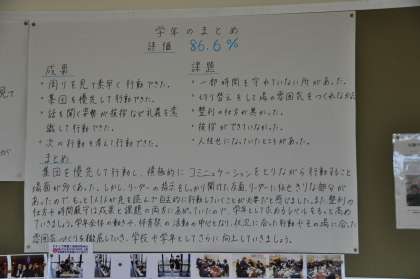 学年のまとめ
評価 86.6%
成果
・周りを見て素早く行動できた。
・集団を優先して行動できた。
・話を聞く姿勢や挨拶など礼義を意
識して行動できた。
・次の行動を考えて行動できた。
課題
・一部時間を守れていない所があった。
・切り替えをして場の雰囲気をつくれなかった
・整列の仕方が悪かった。
・挨拶ができていなかった。
・人任せになっていたところがあった。
まとめ
集団を優先して行動し、積極的にコミュニケーションをとりながら行動すること
場面が多くあった。しかし、リーダーの指示をしっかり聞けた反面、リーダーに任せきりな部分が
あったので、もっと1人1人が先を読んで自主的に行動していくことが必要だと感じました。また整列の
仕方や時間厳守は成果と課題の両方にあがっていたので、学年として求めるレベルをもっと高め
ていきましょう。学年全体の動きや、体育祭の活動の中心となり、状況に合った行動やその場に合った
雰囲気づくりを徹底していき、学校や学年としてさらに向上していきましょう。